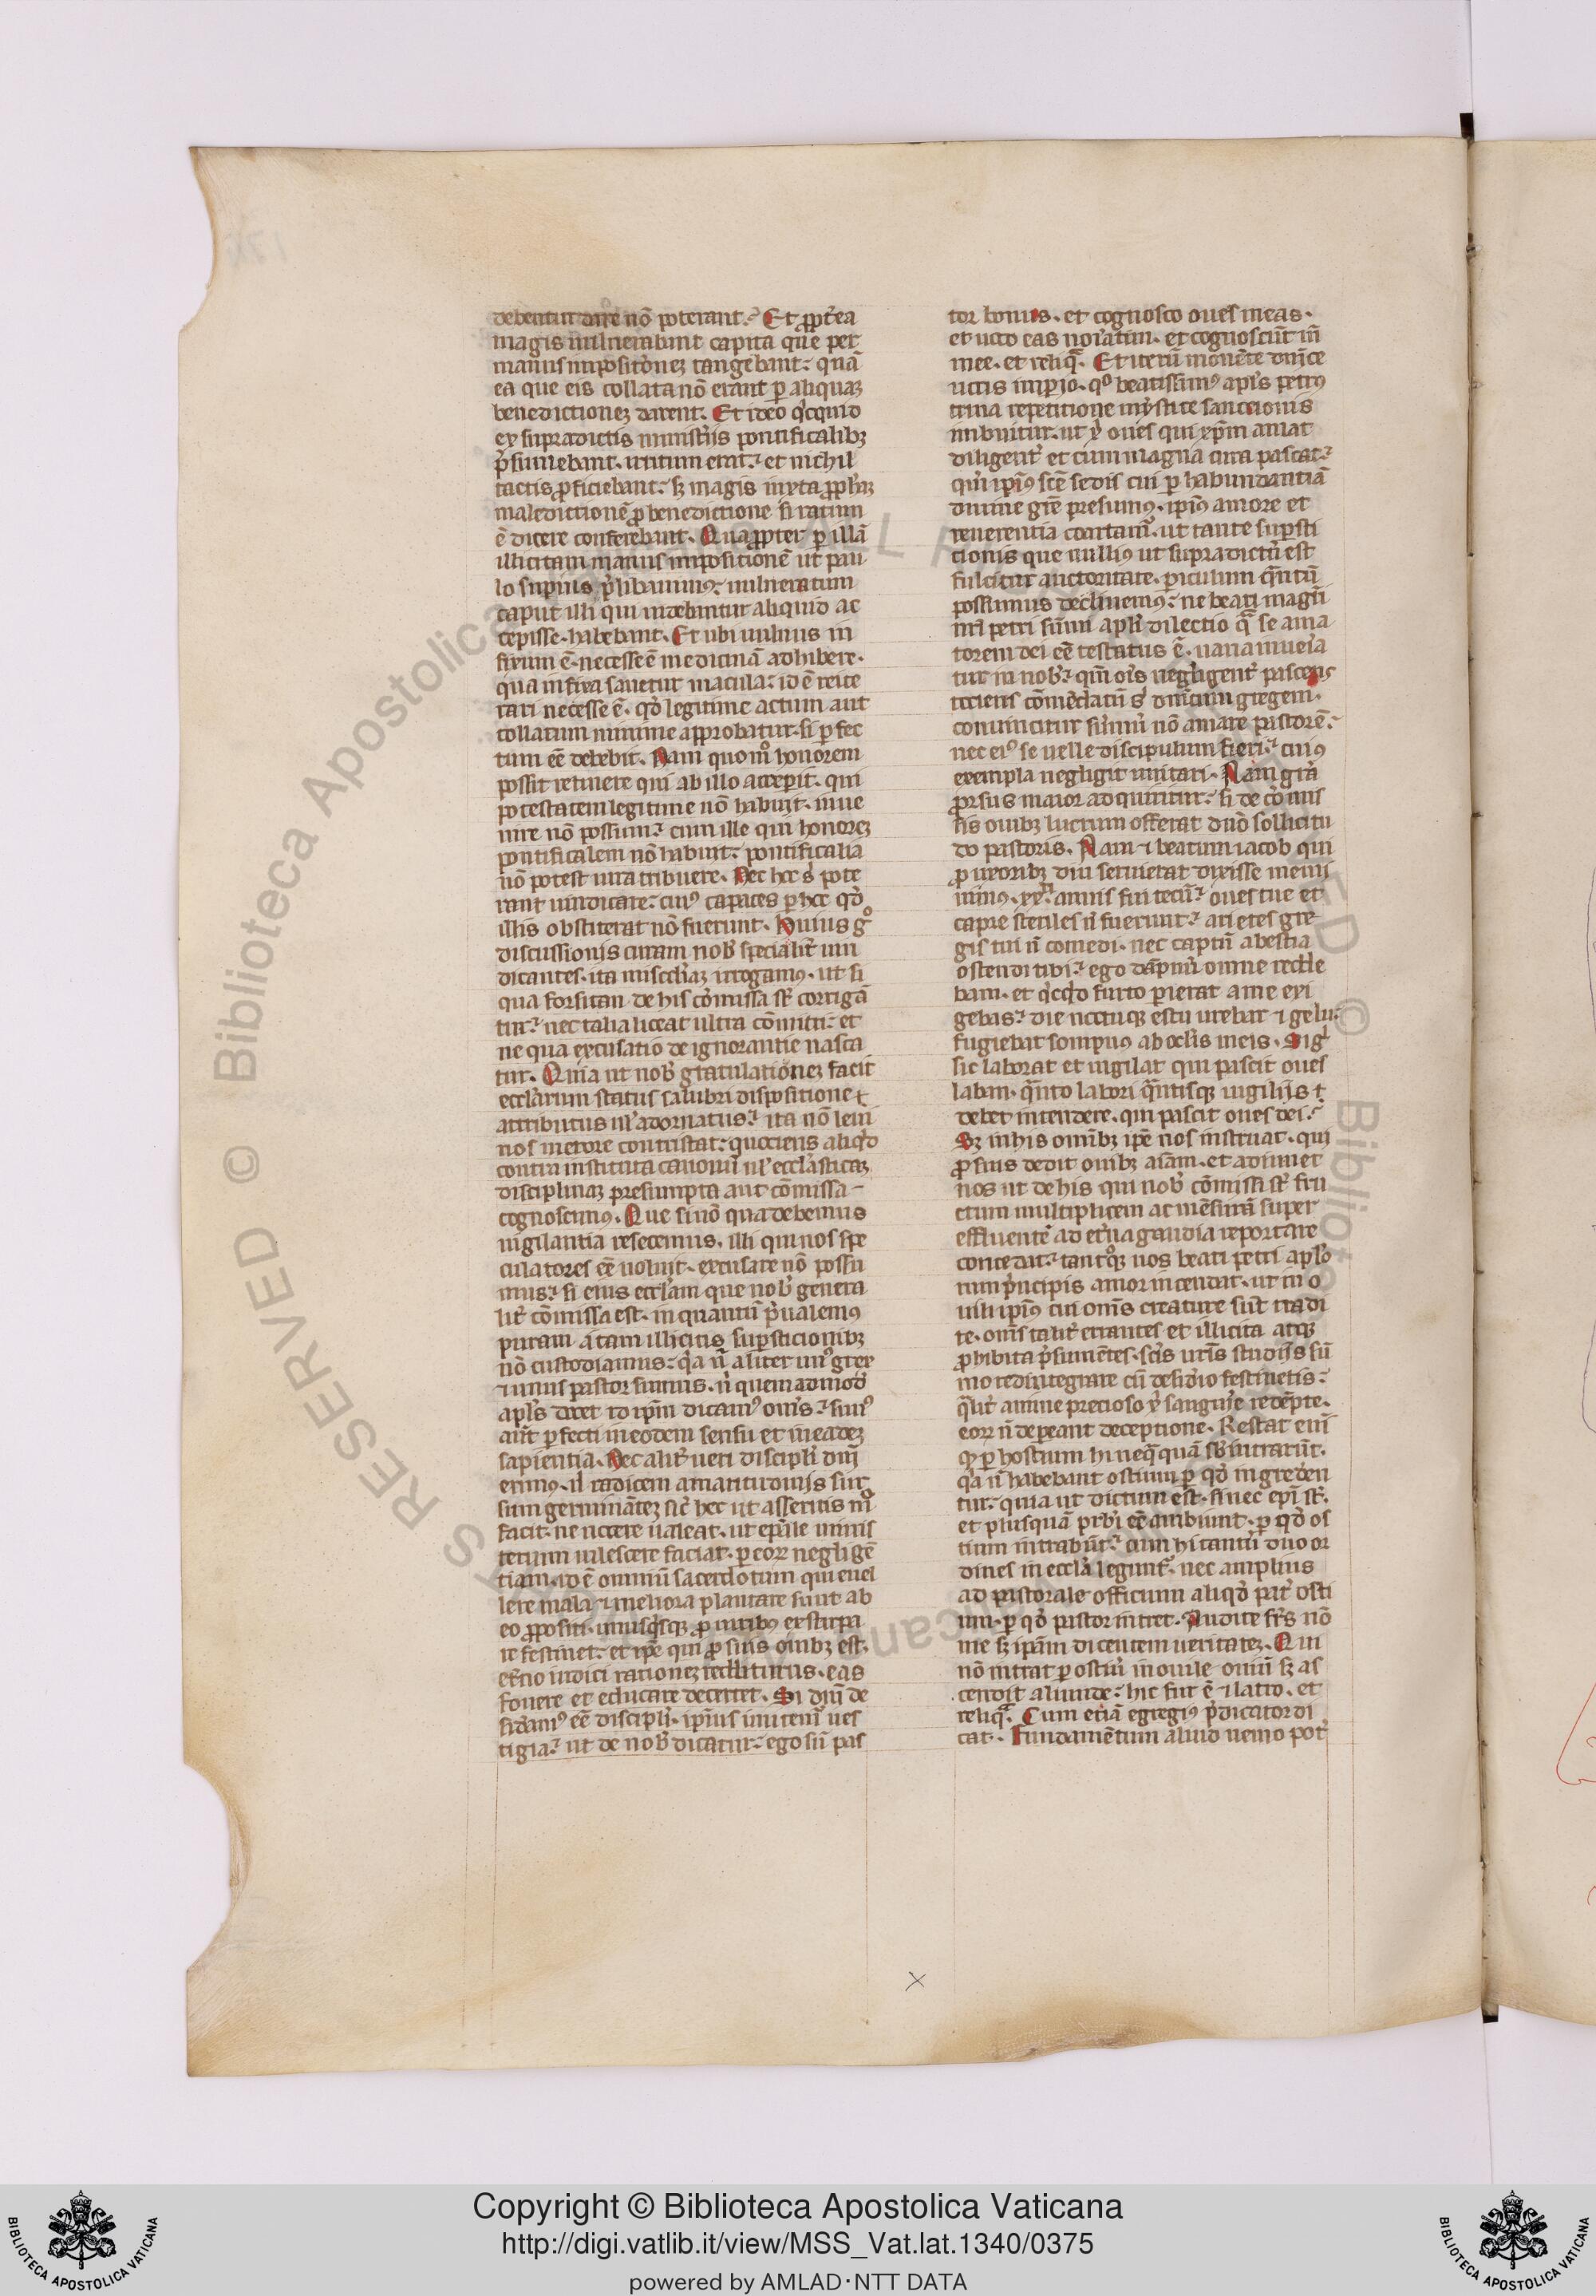 debentur dare nō poterant. Et ꝓpt̄ea
magis uulnerabant capita que per
manus impositōnez tangebant. quā
ea que eis collata nō erant ꝑ aliquaz
benedictionez darent. Et ideo qͥcquid
ex supradictis ministͥis pontificalibꝫ
p̄sumebant. irritum erat. et nichil
tactis ꝓficiebant. sꝫ magis iuxta ꝓph̄iaꝫ
maledictionē ꝓ benedictione si ratum
ē dicere conferebant. Quaꝓpter ꝑ illā
illicitam manus impositionē ut pau
lo supius p̄libauimꝰ. uulneratum
caput illi qui uidebantur aliquid ac
cepisse. habebant. Et ubi uulnus in
fixum ē. necesse ē medicinā adhibere.
qua infixa sanetur macula. id ē reite
rari necesse ē. qd̄ legitime actum aut
collatum minime approbatur. si ꝑfec
tum eē debebit. Nam quomͦ honorem
possit retinere qui ab illo accepit. qui
potestatem legitime nō habuit. inue
nire nō possum. cum ille qui honoreꝫ
pontificalem nō habuit. pontificalia
nō potest iura tribuere. Nec hec s; pote
rant uindicare. cuiꝰ capaces ꝑ hec qd̄
illis obstiterat nō fuerunt. Huius gͦ
discussionis curam nob̄ specialit̄ uin
dicantes. ita misc̄diaꝫ irrogamꝰ. ut si
qua forsitan de his cōmissa st̄ corrigā
tur. nec talia liceat ultra cōmitti. et
ne qua excusatio de ignorantie nasca
tur. Quia ut nob̄ gratulationeꝫ facit
eccl̄arum status salubri dispositione
attributus ul̓ adornatus. ita nō leui
nos merore contristat. quociens aliqͥd
contra instituta canonū ul̓ eccl̄asticaꝫ
disciplinaꝫ presumpta aut cōmissa
cognoscimꝰ. Que si nō qua debemus
uigilantia resecemus. illi qui nos spe
culatores eē uoluit. excusare nō possu
mus. si eius eccl̄am que nob̄ genera
lit̄ cōmissa est. in quantū p̄ualemꝰ
puram a tam illicitis suꝑsticionibꝫ
nō custodiamus. qͥa n̄ aliter unꝰ grex
⁊ unus pastor sumus. n̄ quemadmod̄
apl̄s docet id ip̄m dicamꝰ om̄s. simꝰ
aūt ꝑfecti in eodem sensu et in eadeꝫ
sapientia. Nec alit̄ ueri discipl̄i dn̄i
erimꝰ. n̄ radicem amaritudinis sur
sum germinātez sic̄ hec ut asseritis m̊
facit. ne nocere ualeat. ut ep̄ale minis
terium uilescere faciat. ꝑ eoꝝ negligē
tiam. id ē omniū sacerdotum qui euel
lere mala ⁊ meliora plantare sunt ab
eo ꝓpositi. unusqͥsqꝫ ꝓ uiribꝰ exstirpa
re festinet. et ip̄e qui ꝓ suis ouibꝫ est.
et̄no iudici rationeꝫ redditurus. eas
fouere et educare decertet. Si dn̄i de
sid̄amꝰ eē discipl̄i. ipsius imitem̄ ues
tigia. ut de nob̄ dicatur. ego sū pas
tor bonus. et cognosco oues meas.
et uoco eas noīatim. et cognoscūt m̄
mee. et reliqͣ. Et iterū monēte dn̄ice
uocis imꝑio. qͦ beatissimꝰ apl̄s petrꝰ
trina repetitione mystice sanccionis
imbuitur. ut xͥ oues qui xp̄m amat
diligent̄ et cum magna cura pascat.
qn̄ ip̄iꝰ sc̄e sedis cui ꝑ habundantiā
diuine gr̄e presumꝰ. ip̄iꝰ amore et
reuerentia coartam̄. ut tante suꝑsti
cionis que nulliꝰ ut supradictū est
fulcitur auctoritate. ꝑiculum qn̄tū
possumus declinemꝰ. ne beati magn̄
m̄i petri sūmi apl̄i dilectio qͣ se ama
torem dei eē testatus ē. uana inueīa
tur in nob̄. qm̄ oīs negligent̄ pascens
tociens cōmēdatū s; dn̄icum gregem.
conuincitur sūmū nō amare pastorē.
nec eiꝰ se uelle discipulum fieri. cuiꝰ
exempla negligit imitari. Nam gr̄a
ꝓrsus maior adquiritur. si de cōmis
sis ouibꝫ lucrum offerat dn̄o sollicitu
do pastoris. Nam ⁊ beatum iacob qui
ꝓ uxoribꝫ diu seruierat dixisse memi
nimꝰ. xxͭⁱ annis fui tecū. oues tue et
capre steriles n̄ fuerunt. arietes gre
gis tui n̄ comedi. nec captū a bestia
ostendi tibi. ego dāpnū omne redde
bam. et qͥcqͥd furto ꝑierat a me exi
gebas. die noctuqꝫ estu urebar ⁊ gelu.
fugiebat sompnus ab oclis meis. Si gͦ
sic laborat et uigilat qui pascit oues
laban. qn̄to labori qn̄tisqꝫ uigiliis
debet intendere. qui pascit oues dei.
Sꝫ in his omībꝫ ip̄e nos instruat. qui
ꝓ suis dedit ouibꝫ aīam. et adiuuet
nos ut de his qui nob̄ cōmissi st̄ fru
ctum multiplicem ac mēsurā super
effluentē ad et̄na gaudia reportare
concedat. tantoqꝫ nos beati petri apl̄o
rum p̄ncipis amor incendat. ut in o
uili ip̄iꝰ cui om̄s creature sūt tradi
te. om̄s talit̄ errantes et illicita atqꝫ
ꝓhibita p̄sumētes. sc̄is ur̄is studiis sū
mo redintegrare cū desid̄io festinetis.
qͣlit̄ anime precioso xͥ sanguīe redēpte.
eoꝝ n̄ depeant deceptione. Restat enī
qꝫ ꝑ hostium hi neqͣquā sb̄intrarūt.
qͥa n̄ habebant ostium ꝑ qd̄ ingreden
tur. quia ut dictum est. si nec ep̄i st̄.
et plusquā pr̄bi eē ambiunt. ꝑ qd̄ os
tium intrabūt. cum hi tantū duo or
dines in eccl̄a legunt̄. nec amplius
ad pastorale officium aliqd̄ pat̄ osti
um. ꝑ qd̄ pastor intret. Audite fr̄s nō
me sꝫ ip̄am dicentem ueritateꝫ. Qui
nō intrat ꝑ ostiū in ouile ouiū sꝫ as
cendit aliunde. hic fur ē ⁊ latro. et
reliqͣ. Cum etiā egregiꝰ p̄dicator di
cat. Fundamentum aliud nemo pot̄
x
Copyright © Biblioteca Apostolica Vaticana
http://digi.vatlib.it/view/MSS_Vat.lat.1340/0375
powered by AMLAD·NTT DATA